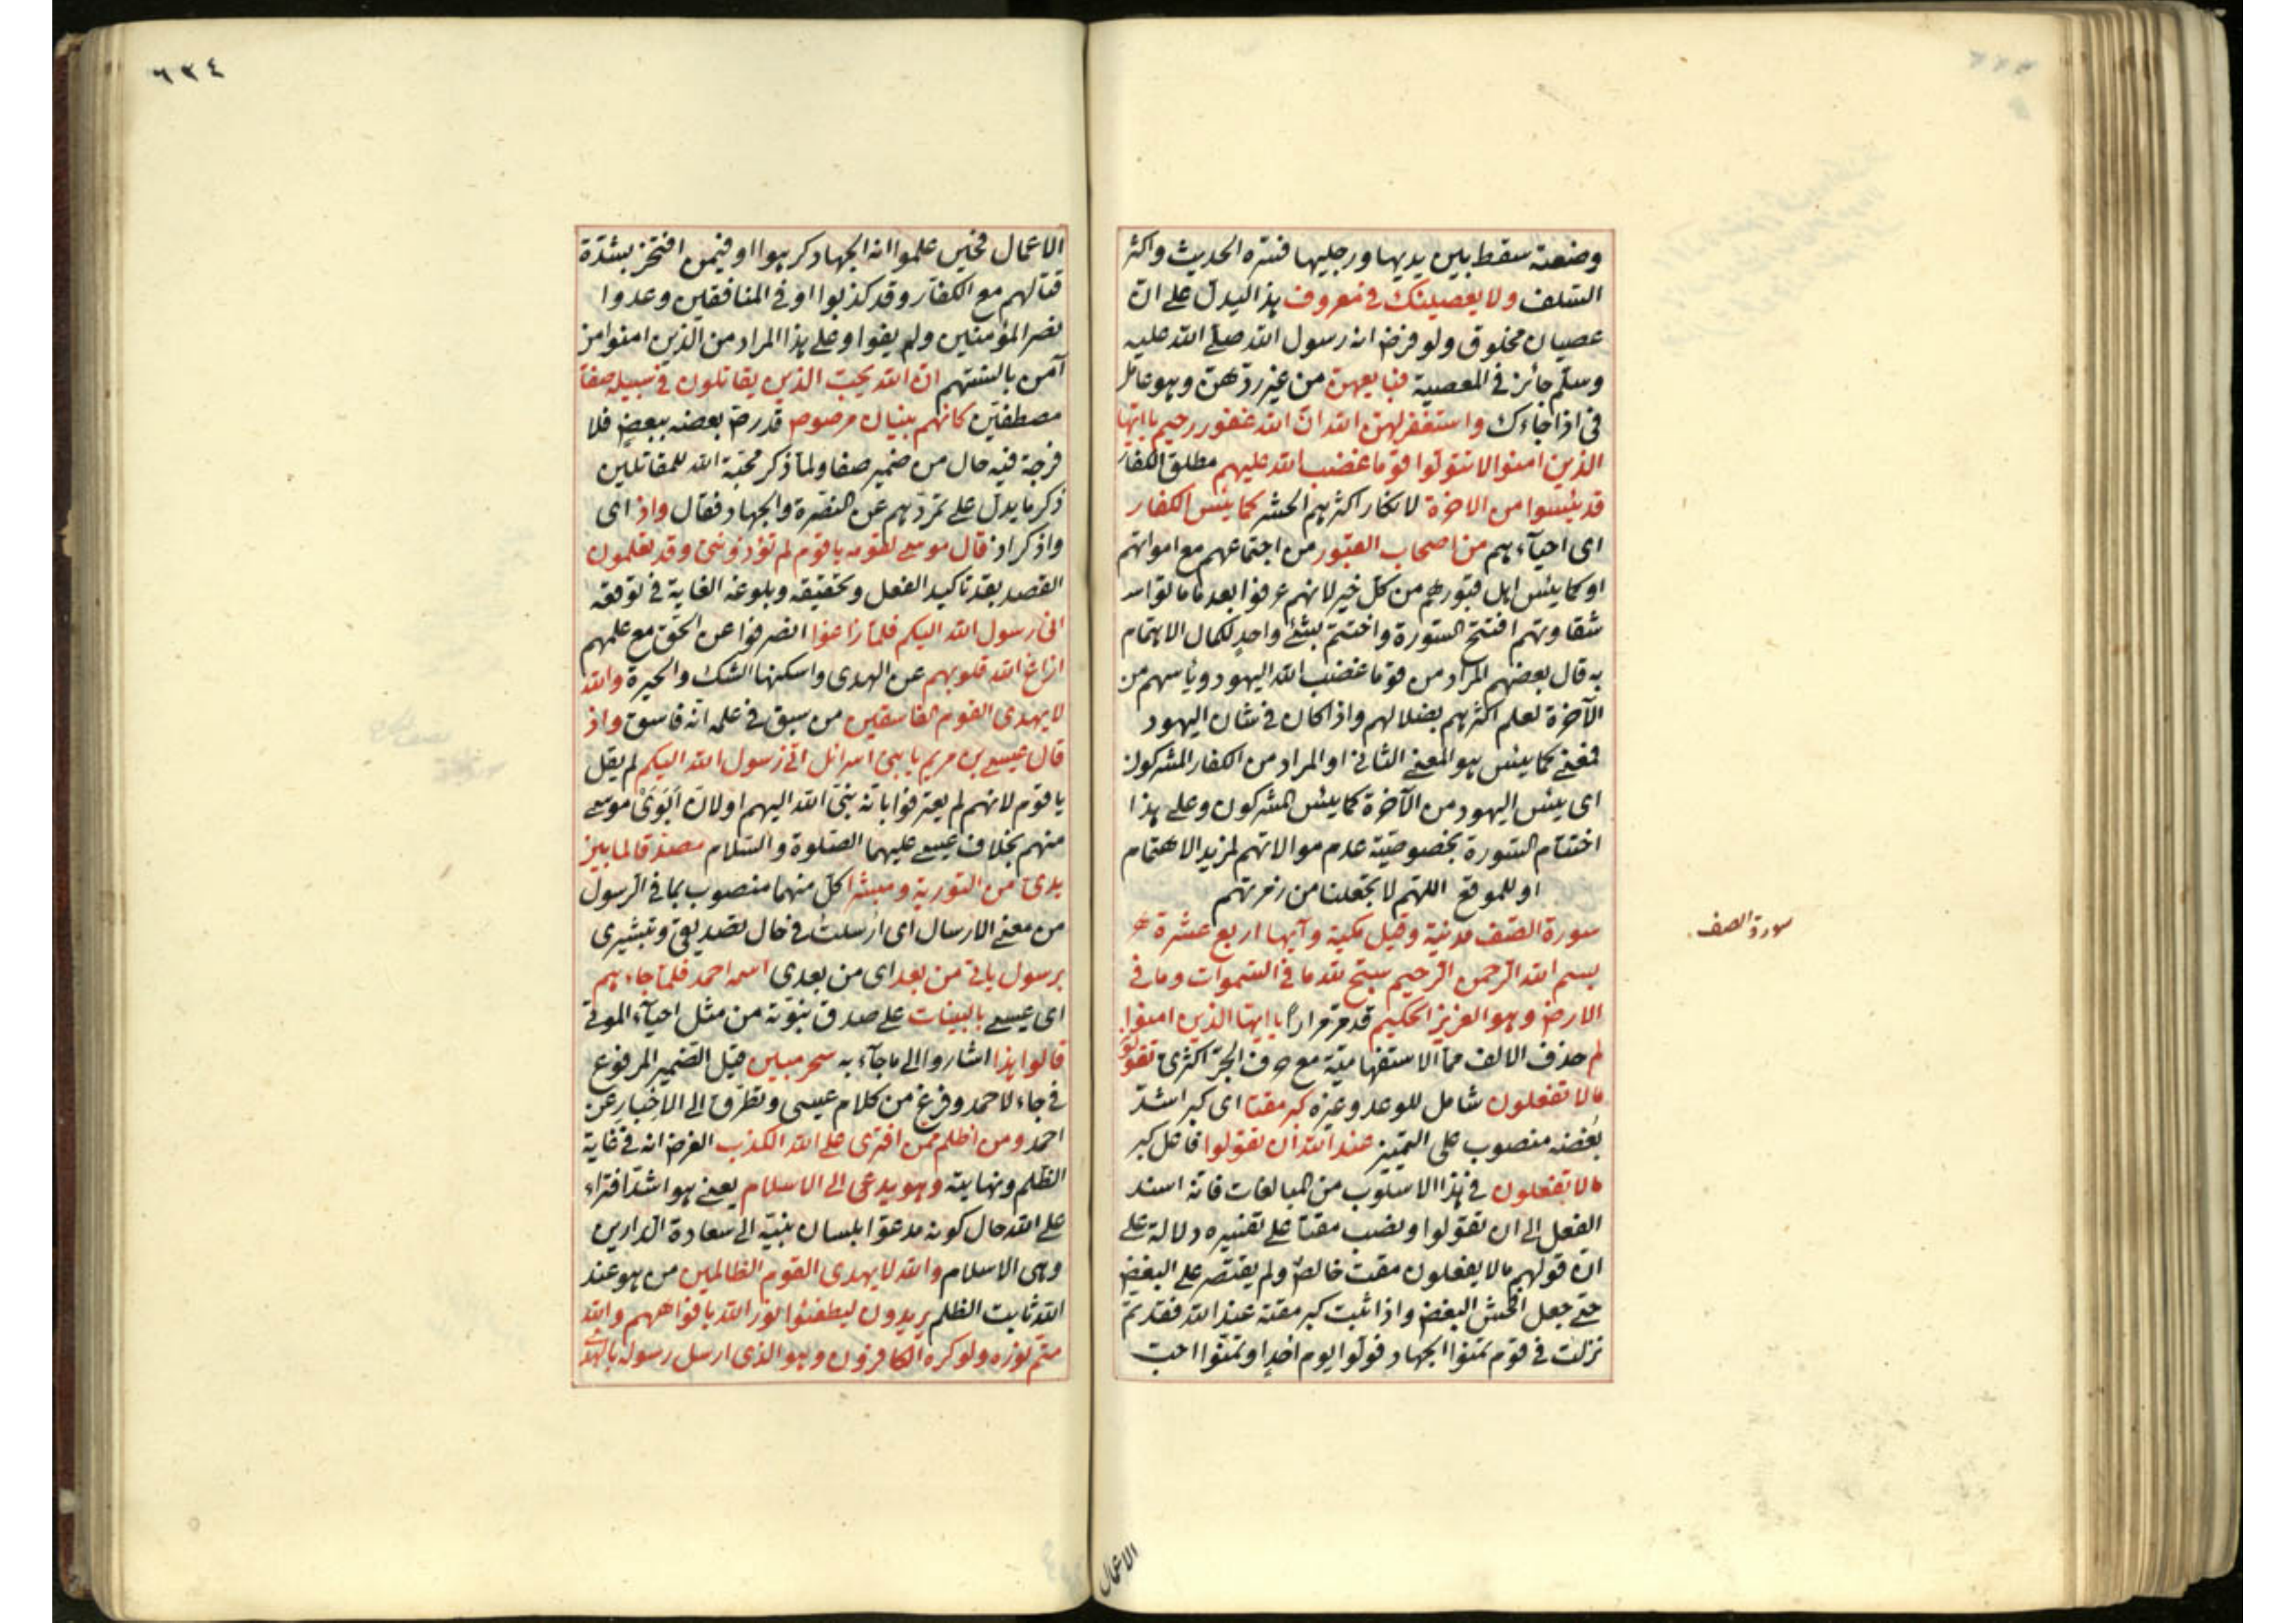 وضعته سقط بين يديها ورجليها فسّره الحديث واكثر
السّلف ولا يعصينك في معروف هذا ليدل على انّ
عصيان مخلوق ولو فرض انه رسول الله صلّى الله عليه
وسلّم جائز في المعصية فبايعهنّ من غير ردّهنّ وهو عامل
في اذا جاءك واستغفر لهنّ الله انّ الله غفور رحيم يا ايّها
الذين امنوا لا تتولّوا قوما غضب الله عليهم مطلق الكفار
قد يئسوا من الاخرة لانكار اكثرهم الحشر كما يئس الكفار
اى احيآءهم من اصحاب القبور من اجتماعهم مع امواتهم
او كما يئس اهل قبورهم من كلّ خير لانهم عرفوا بعد ما ماتوا
شقاوتهم افتتح السّورة واختتم بشئ واحد لكمال الاهتمام
به قال بعضهم المراد من قوما غضب الله اليهود وياسهم من
الآخرة لعلم اكثرهم بضلالهم واذا كان في شان اليهود
فمعنى كما يئس هو المعنى الثاني او المراد من الكفار المشركون
اى يئس اليهود من الآخرة كما يئس المشركون وعلى هذا
اختتام السّورة بخصوصيّة عدم موالاتهم لمزيد الاهتمام
او للموقع اللهمّ لا تجعلنا من زمرتهم
سورة الصّف مدنيّة وقيل مكيّة وآيها اربع عشرة
سورة الصف
بسم الله الرّحمن الرّحيم سبّح لله ما في السّموات وما في
الارض وهو العزيز الحكيم قد مرّ مرارًا يا ايّها الذين امنوا
لم حذف الالف من ما الاستفهاميّة مع حرف الجرّ اكثرىّ تقولون
ما لا تفعلون شامل للوعد وغيره كبر مقتا اى كبر اشدّ
بغضه منصوب على التمييز عند الله ان تقولوا فاعل كبر
ما لا تفعلون في هذا الاسلوب من المبالغات فانه اسند
الفعل الى ان تقولوا ونصب مقتا على تفسيره دلالة على
انّ قولهم ما لا يفعلون مقت خالص ولم يقتصر على البغض
حتّى جعل افحش البغض واذا ثبت كبر مقته عند الله فقد تمّ
نزلت في قوم تمنّوا الجهاد فولّوا يوم اُحد او تمنّوا احبّ
الاعمال
٦٣٤
الاعمال فحين علموا انه الجهاد كرهوا او فيمن افتخر بشدّة
قتالهم مع الكفّار وقد كذبوا او في المنافقين وعدوا
نصر المؤمنين ولم يفوا وعلى هذا المراد من الّذين امنوا من
آمن بالسنتهم انّ الله يحبّ الذين يقاتلون في سبيله صفّا
مصطفّين كانهم بنيان مرصوص قد رصّ بعضه ببعض فلا
فرجة فيه حال من ضمير صفا ولمّا ذكر محبّة الله للمقاتلين
ذكر ما يدلّ على تمرّدهم عن النصّرة والجهاد فقال واذ اى
واذكر اذ قال موسى لقومه يا قوم لم تؤذونني وقد تعلمون
القصد بقد تاكيد الفعل وتحقيقه وبلوغه الغاية في توقعه
انّي رسول الله اليكم فلمّا زاغوا انصرفوا عن الحق مع علمهم
ازاغ الله قلوبهم عن الهدى واسكنها الشك والحيرة والله
لا يهدى القوم الفاسقين من سبق في علمه انّه فاسق واذ
قال عيسى بن مريم يا بنى اسرائل انّي رسول الله اليكم لم يقل
يا قوم لانهم لم يعترفوا بانّه نبىّ الله اليهم او لانّ اَبَوَىْ موسى
منهم بخلاف عيسى عليهما الصّلوة والسّلام مصدّقا لما بين
يدىّ من التورية ومبشّرا كلّ منهما منصوب بما في الرّسول
من معنى الارسال اى ارسلت في حال تصديقي وتبشيرى
برسول ياتي من بعد اى من بعدى اسمه احمد فلمّا جاءهم
اى عيسى بالبينات على صدق نبوّته من مثل احيآء الموتى
قالوا هذا اشاروا الى ما جآء به سحر مبين قيل الضّمير المرفوع
في جاء لاحمد وفرغ من كلام عيسى وتطرّق الى الاخبار عن
احمد ومن اظلم ممّن افترى على الله الكذب الغرض انه في غاية
الظّلم ونهايته وهو يدعى الى الاسلام يعنى هو اشدّ افتراء
على الله حال كونه مدعوّا بلسان نبيّه الى سعادة الدّارين
وهى الاسلام والله لا يهدى القوم الظالمين من هو عند
الله ثابت الظلم يريدون ليطفئوا نور الله بافواههم والله
متمّ نوره ولو كره الكافرون وهو الذى ارسل رسوله بالهدى